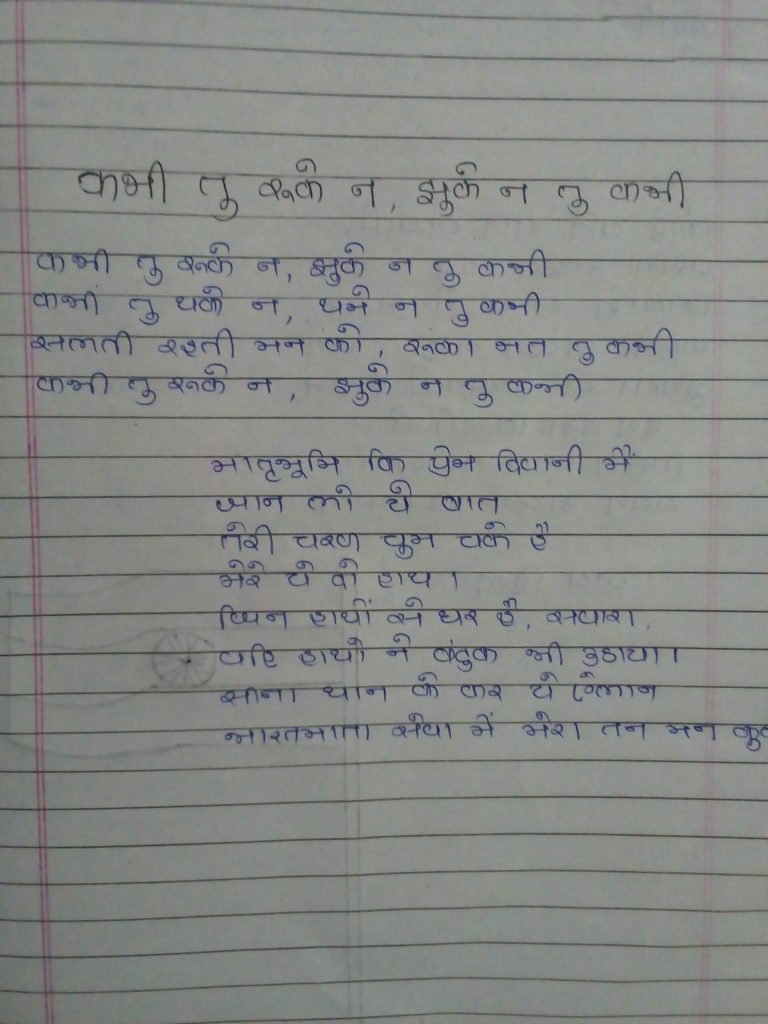 कभी तु रूके न, झुके न तु कभी
कभी तु रूके न, झुके न तु कभी
कभी तु थके न, थमे न तु कभी
सलती रश्ती मन को, रूका मत तु कभी
कभी तु रूके न, झुके न तु कभी
मातृभूमि कि प्रेम दिवानी मैं
जान लो ये बात
तेरी चरण चुम चके है
मेरे ये वो हाथ।
जिन हाथों से घर है, सवारा,
वहि हाथो ने बंदुक भी उठाया।
सीना थान के कर ये ऐलान
भारतमाता सेवा में मेरा तन मन